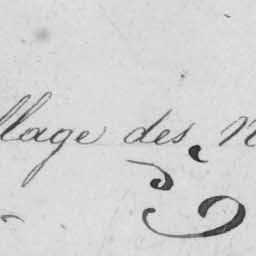 llage des N